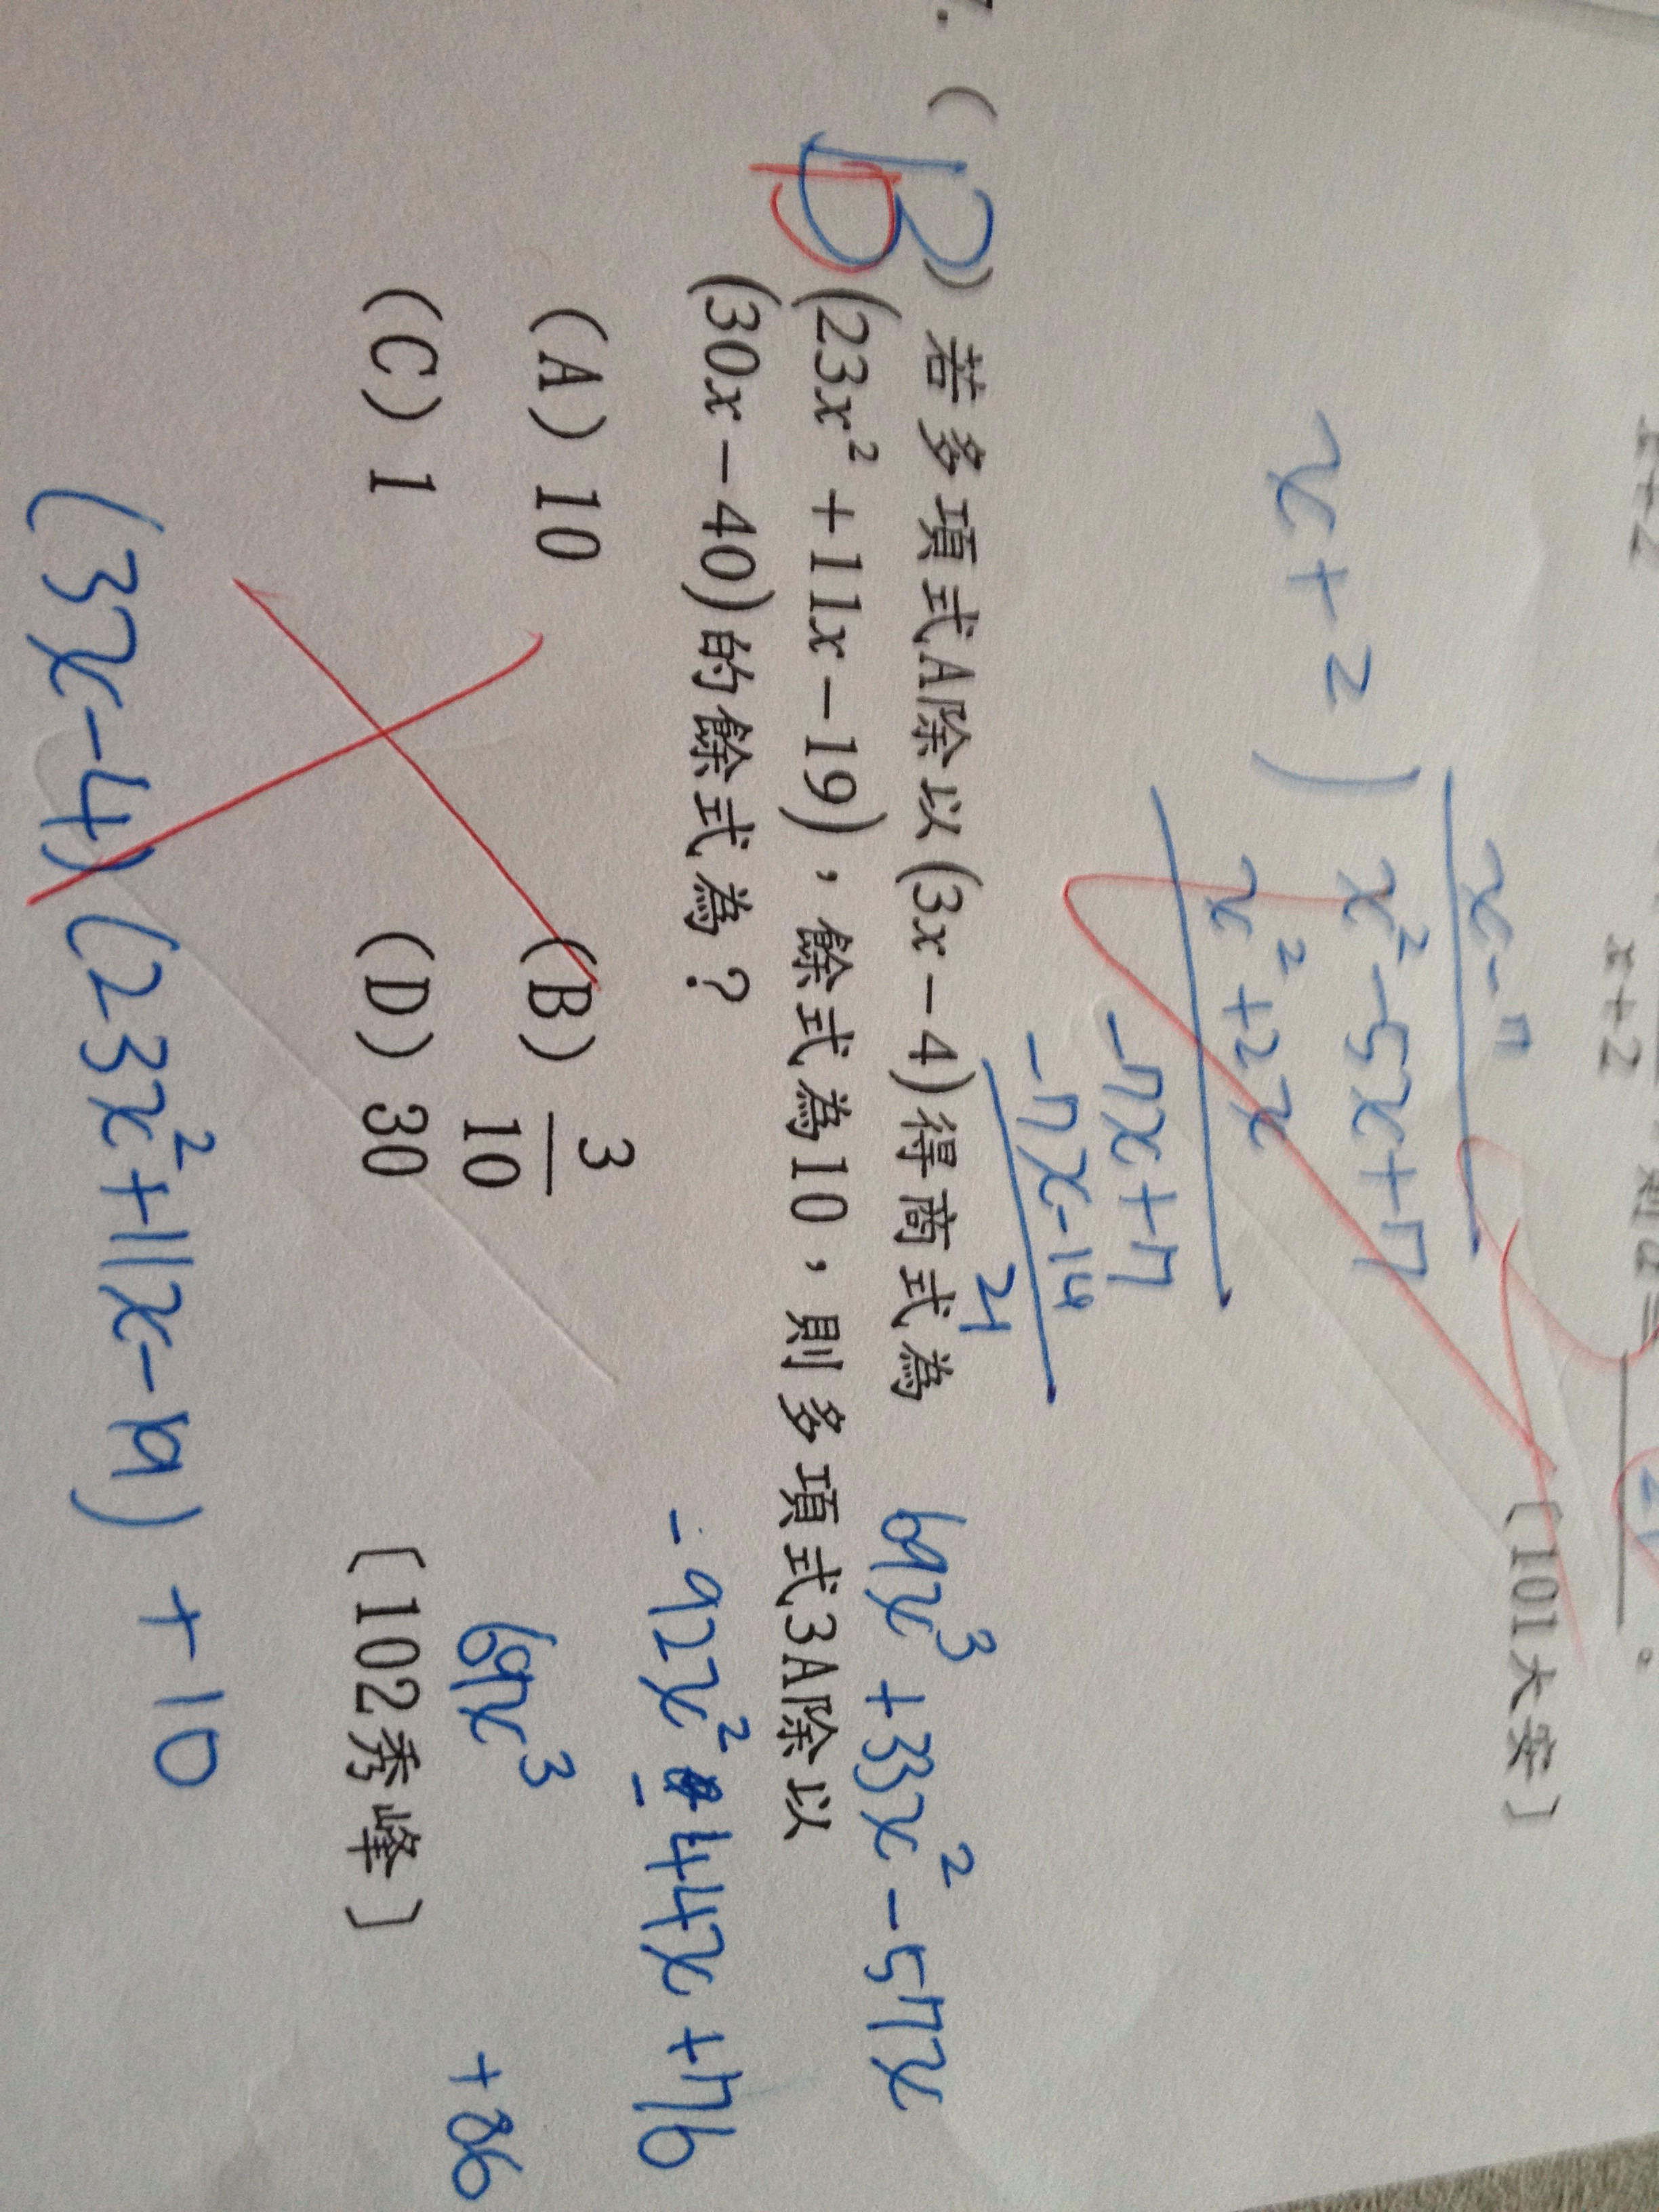 x+2
x+2
則a=
。
〔101大安〕
x-7
x+2
x²-5x+7
x²+2x
-7x+7
-7x-14
21
7.(B)若多項式A除以(3x-4)得商式為
D
(23x²+11x-19),餘式為10,則多項式3A除以
(30x-40)的餘式為?
(A)10
(B)3/10
(C)1
(D)30
〔102秀峰〕
69x³+33x²-57x
-92x²-44x+76
69x³
+86
(3x-4)(23x²+11x-19)+10